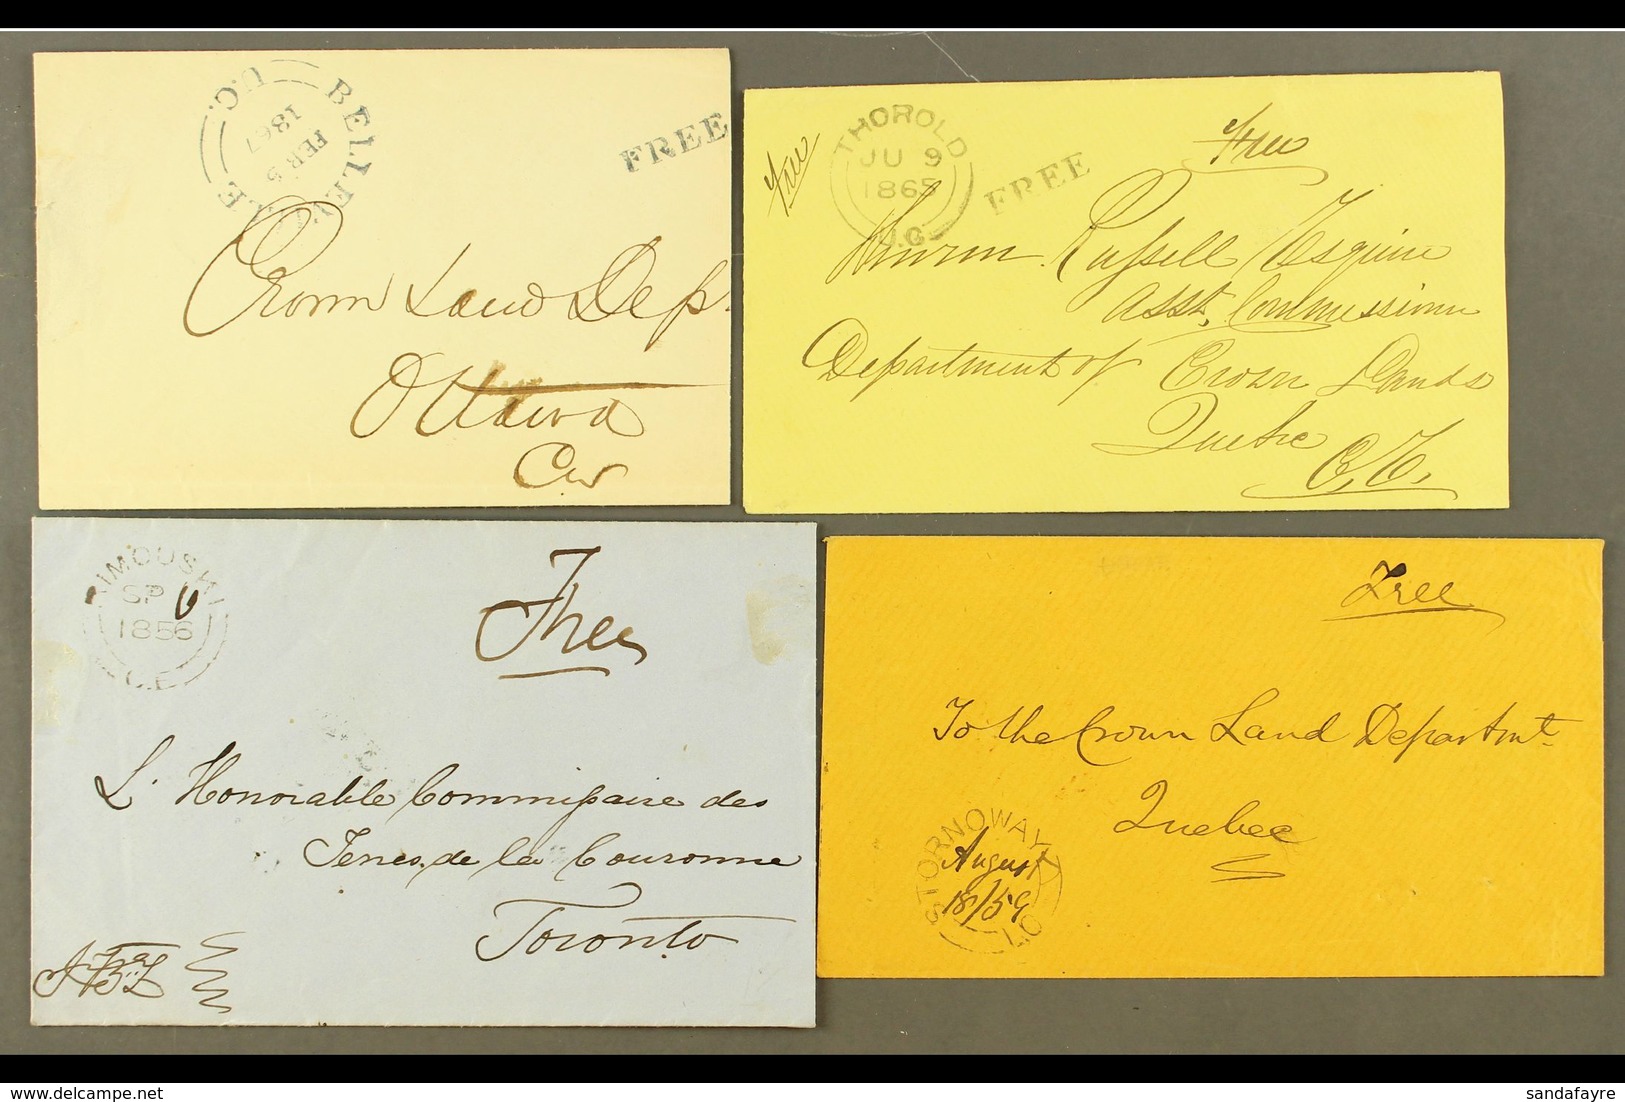 BELLEVILLE
FEB 5
1867
U.C.
FREE
Crown Land Dep.
Ottawa
CW
Free
THOROLD
JU 9
1865
U.C.
FREE
Free
Russell Esquire
Asst. Commissioner
Department of Crown Lands
Quebec
C. E.
RIMOUSKI
SP 6
1856
C.E
Free
L' Honorable Commissaire des
Terres de la Couronne
Toronto
Free
To the Crown Land Departmt
Quebec
STORNOWAY
August
18/59
L.C
sandafayre